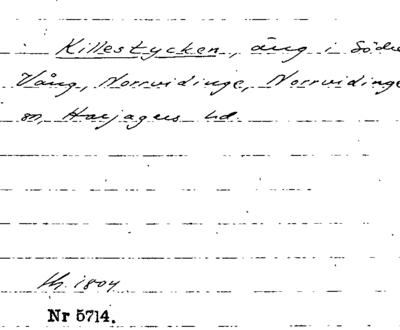 Killestycken, äng i Södra
Vång, Norrvidinge, Norrvidinge
sn, Harjagers hd.
1804
Nr 5714.